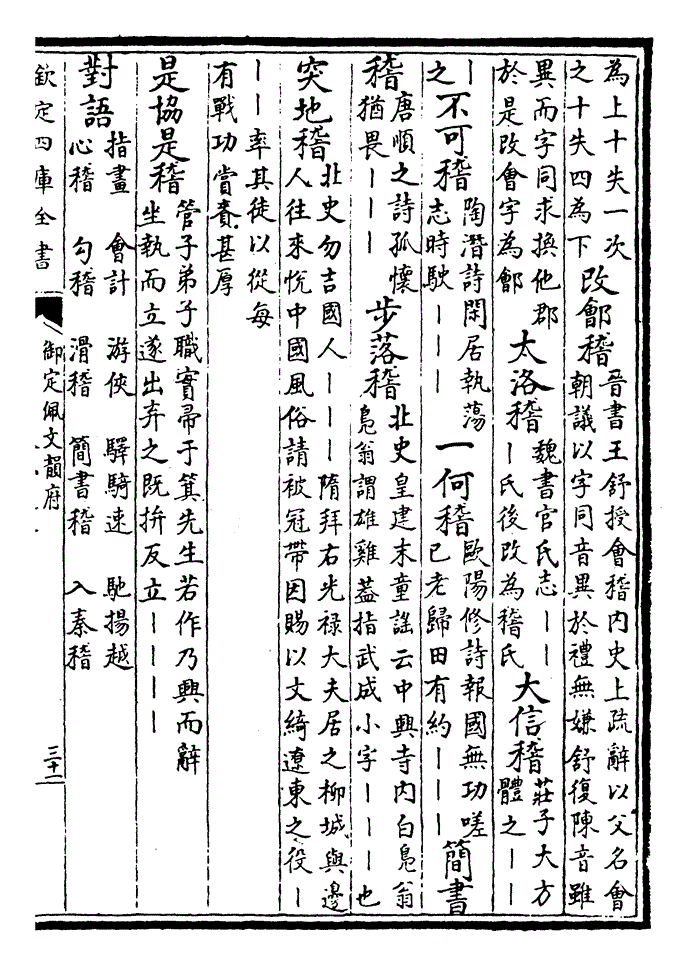 為上十失一次
之十失四為下
改鄶稽
晉書王舒授會稽內史上疏辭以父名會
朝議以字同音異於禮無嫌舒復陳音雖
異而字同求換他郡
於是改會字為鄶
太洛稽
魏書官氏志丨丨
丨氏後改為稽氏
大信稽
莊子大方
體之丨丨
丨
之
不可稽
陶潛詩閑居執蕩
志時駛丨丨丨
一何稽
歐陽修詩報國無功嗟
已老歸田有約丨丨丨
簡書
稽
唐順之詩孤懷
猶畏丨丨丨
步落稽
北史皇建末童謠云中興寺內白鳧翁
鳧翁謂雄雞蓋指武成小字丨丨丨也
突地稽
北史勿吉國人丨丨丨隋拜右光祿大夫居之柳城與邊
人往來悅中國風俗請被冠帶因賜以文綺遼東之役丨
丨丨率其徒以從每
有戰功賞賚甚厚
是協是稽
管子弟子職實帚于箕先生若作乃興而辭
坐執而立遂出弃之既拚反立丨丨丨丨
對語
指畫 會計 游俠 驛騎速 馳揚越
心稽 勾稽 滑稽 簡書稽 入秦稽
欽定四庫全書
御定佩文韻府
三十二